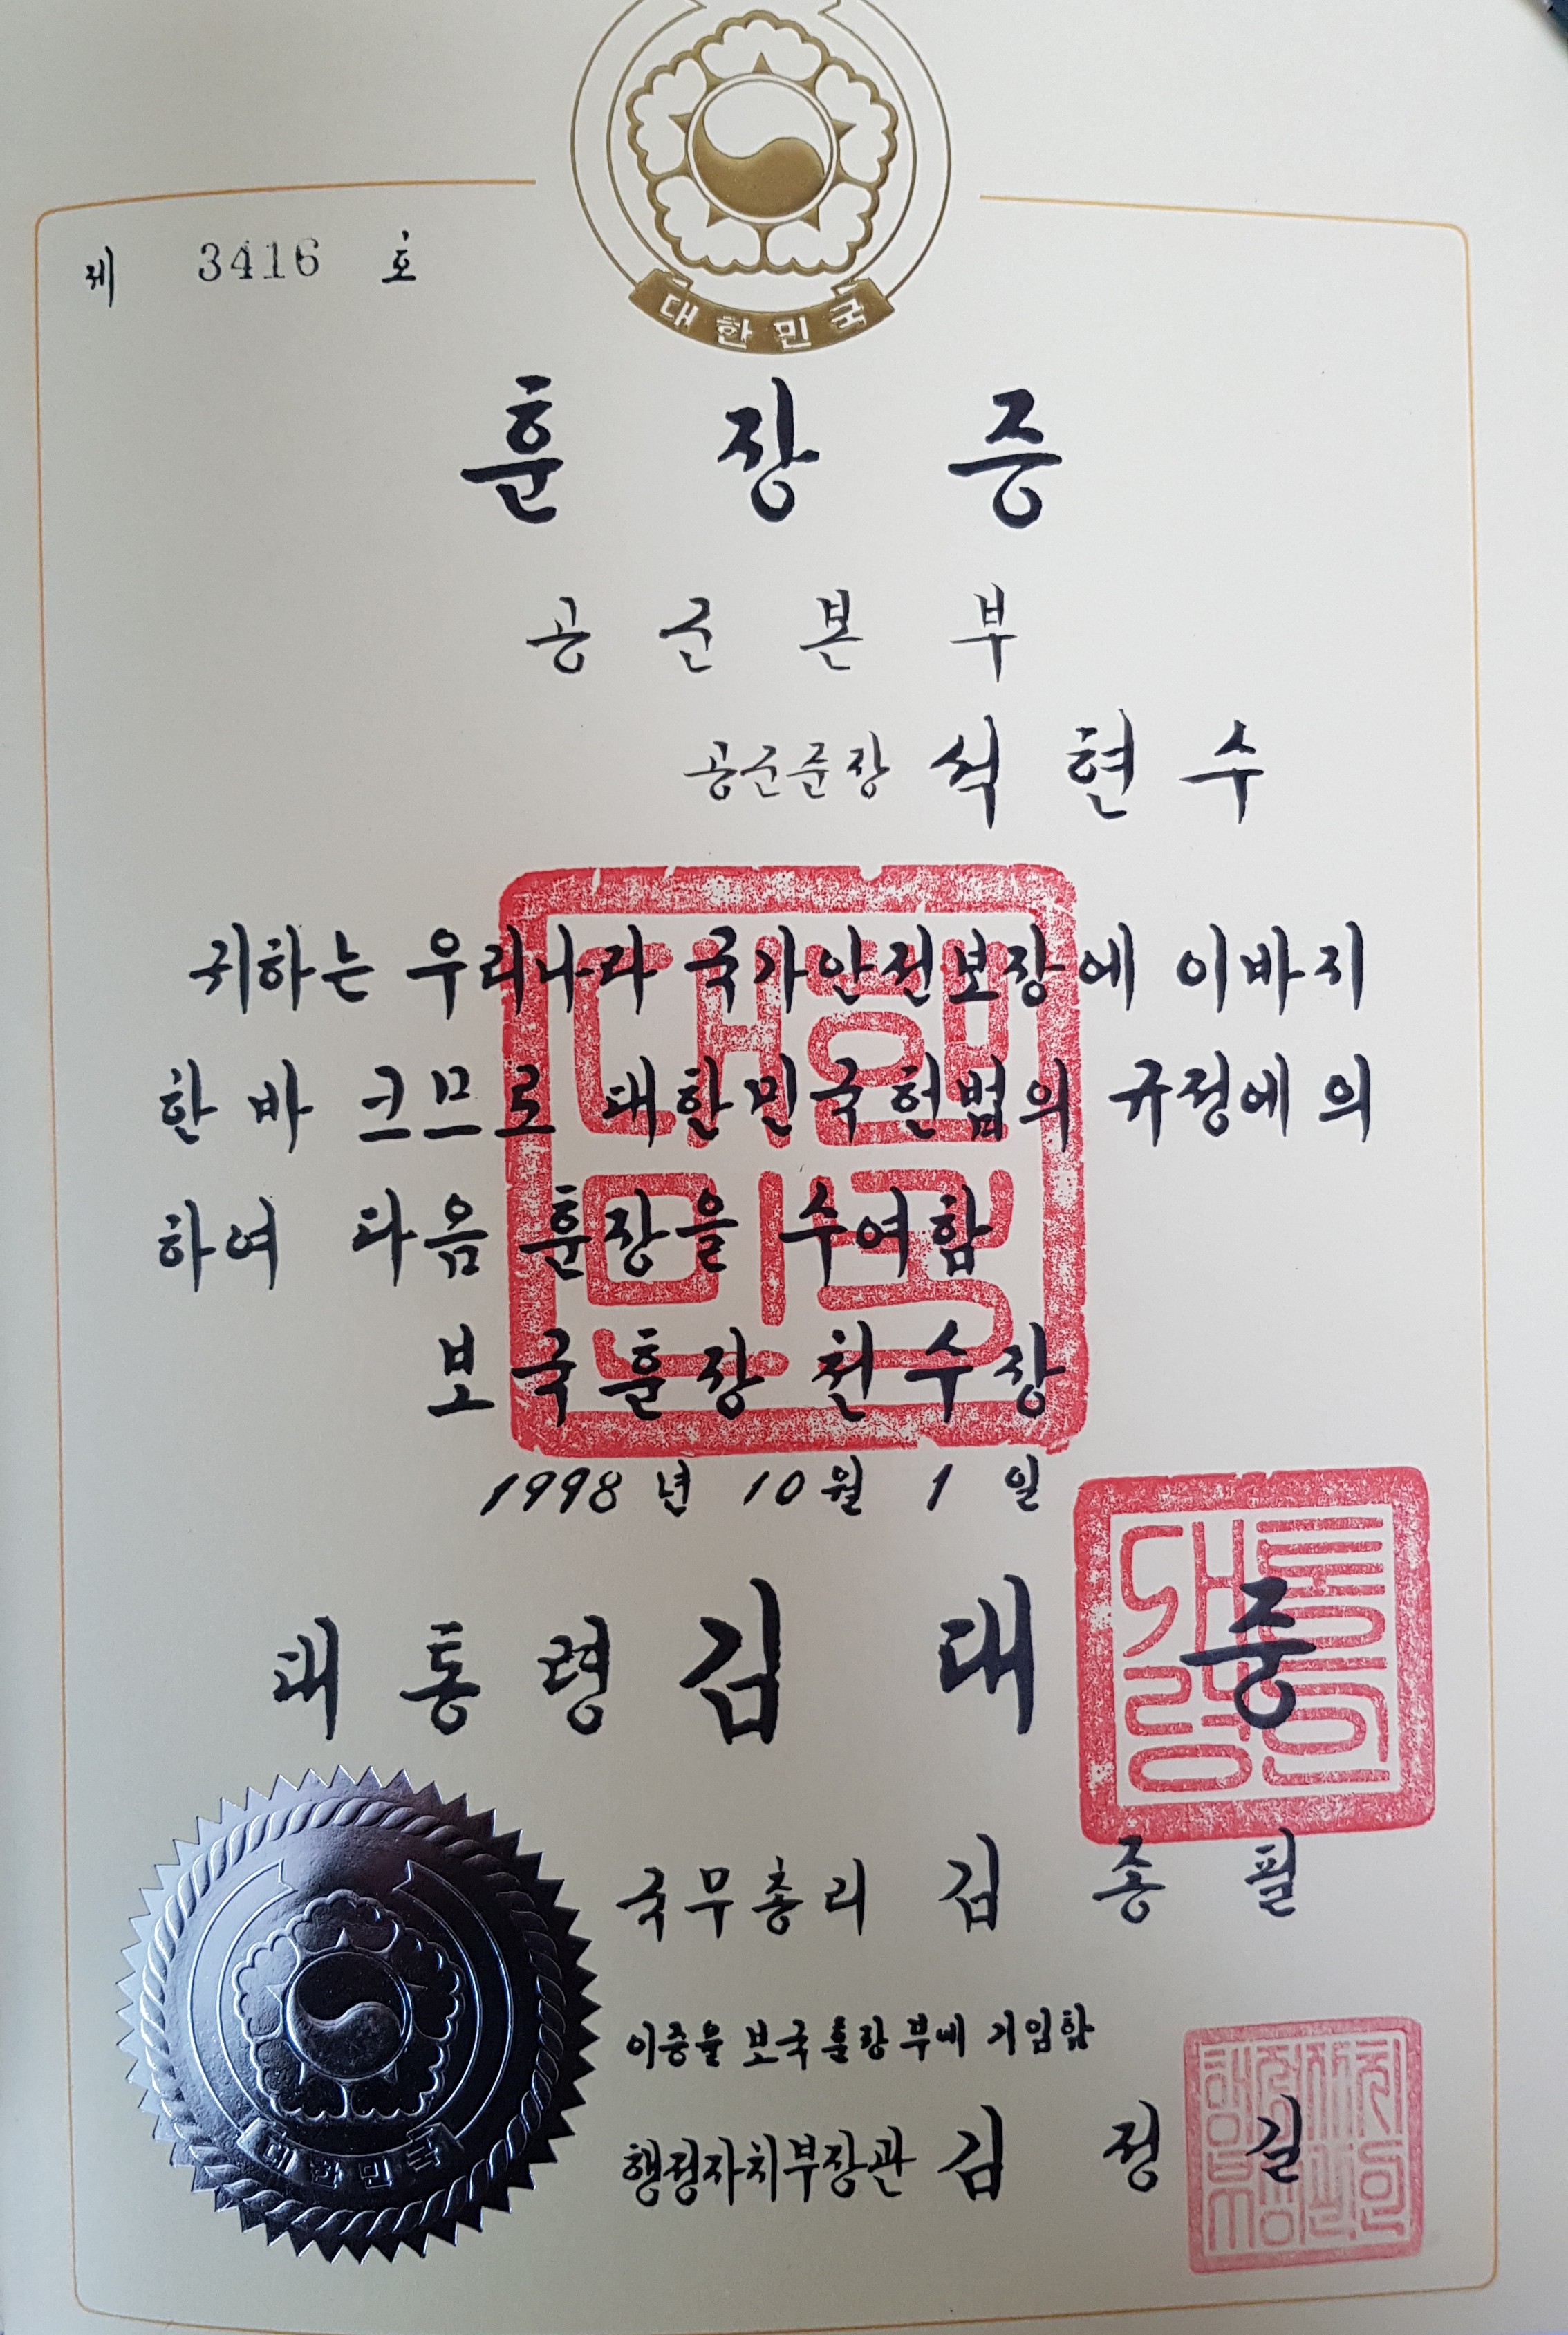 대한민국
제 3416 호
훈장증
공군본부
공군준장 석현수
귀하는 우리나라 국가안전보장에 이바지
한 바 크므로 대한민국헌법의 규정에 의
하여 다음 훈장을 수여함
보국훈장 천수장
1998년 10월 1일
대통령 김대중
국무총리 김종필
이증을 보국훈장부에 기입함
행정자치부장관 김정길
대한민국
대한민국
대통령인